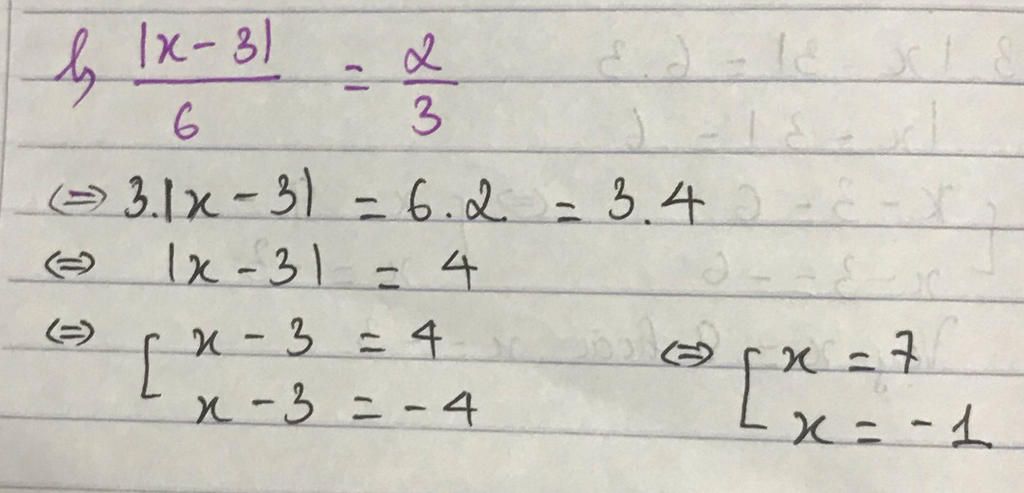 b, |x - 3| / 6 = 2 / 3
⇔ 3.|x - 3| = 6.2 = 3.4
⇔ |x - 3| = 4
⇔ [ x - 3 = 4 ⇔ [ x = 7
x - 3 = -4 x = -1